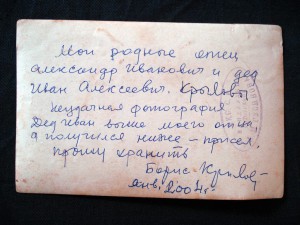 Мои родные отец
Александр Иванович и дед
Иван Алексеевич. Крыловы
Неудачная фотография
Дед Иван выше моего отца,
а получился ниже – присел.
Прошу хранить
Борис Крылов
янв. 2004г.